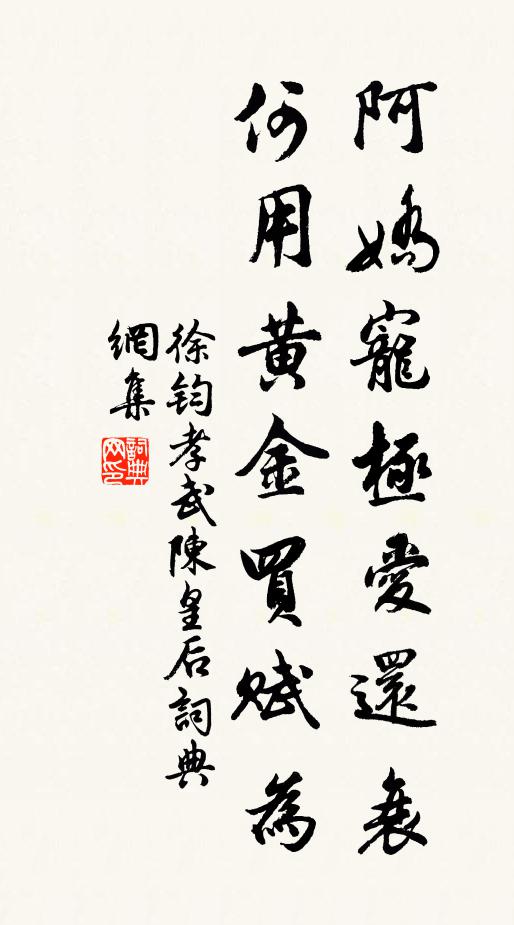 阿嬌寵極愛還衰
何用黃金買賦為
徐鈞孝武陳皇后詞典
網集
詞典
网印